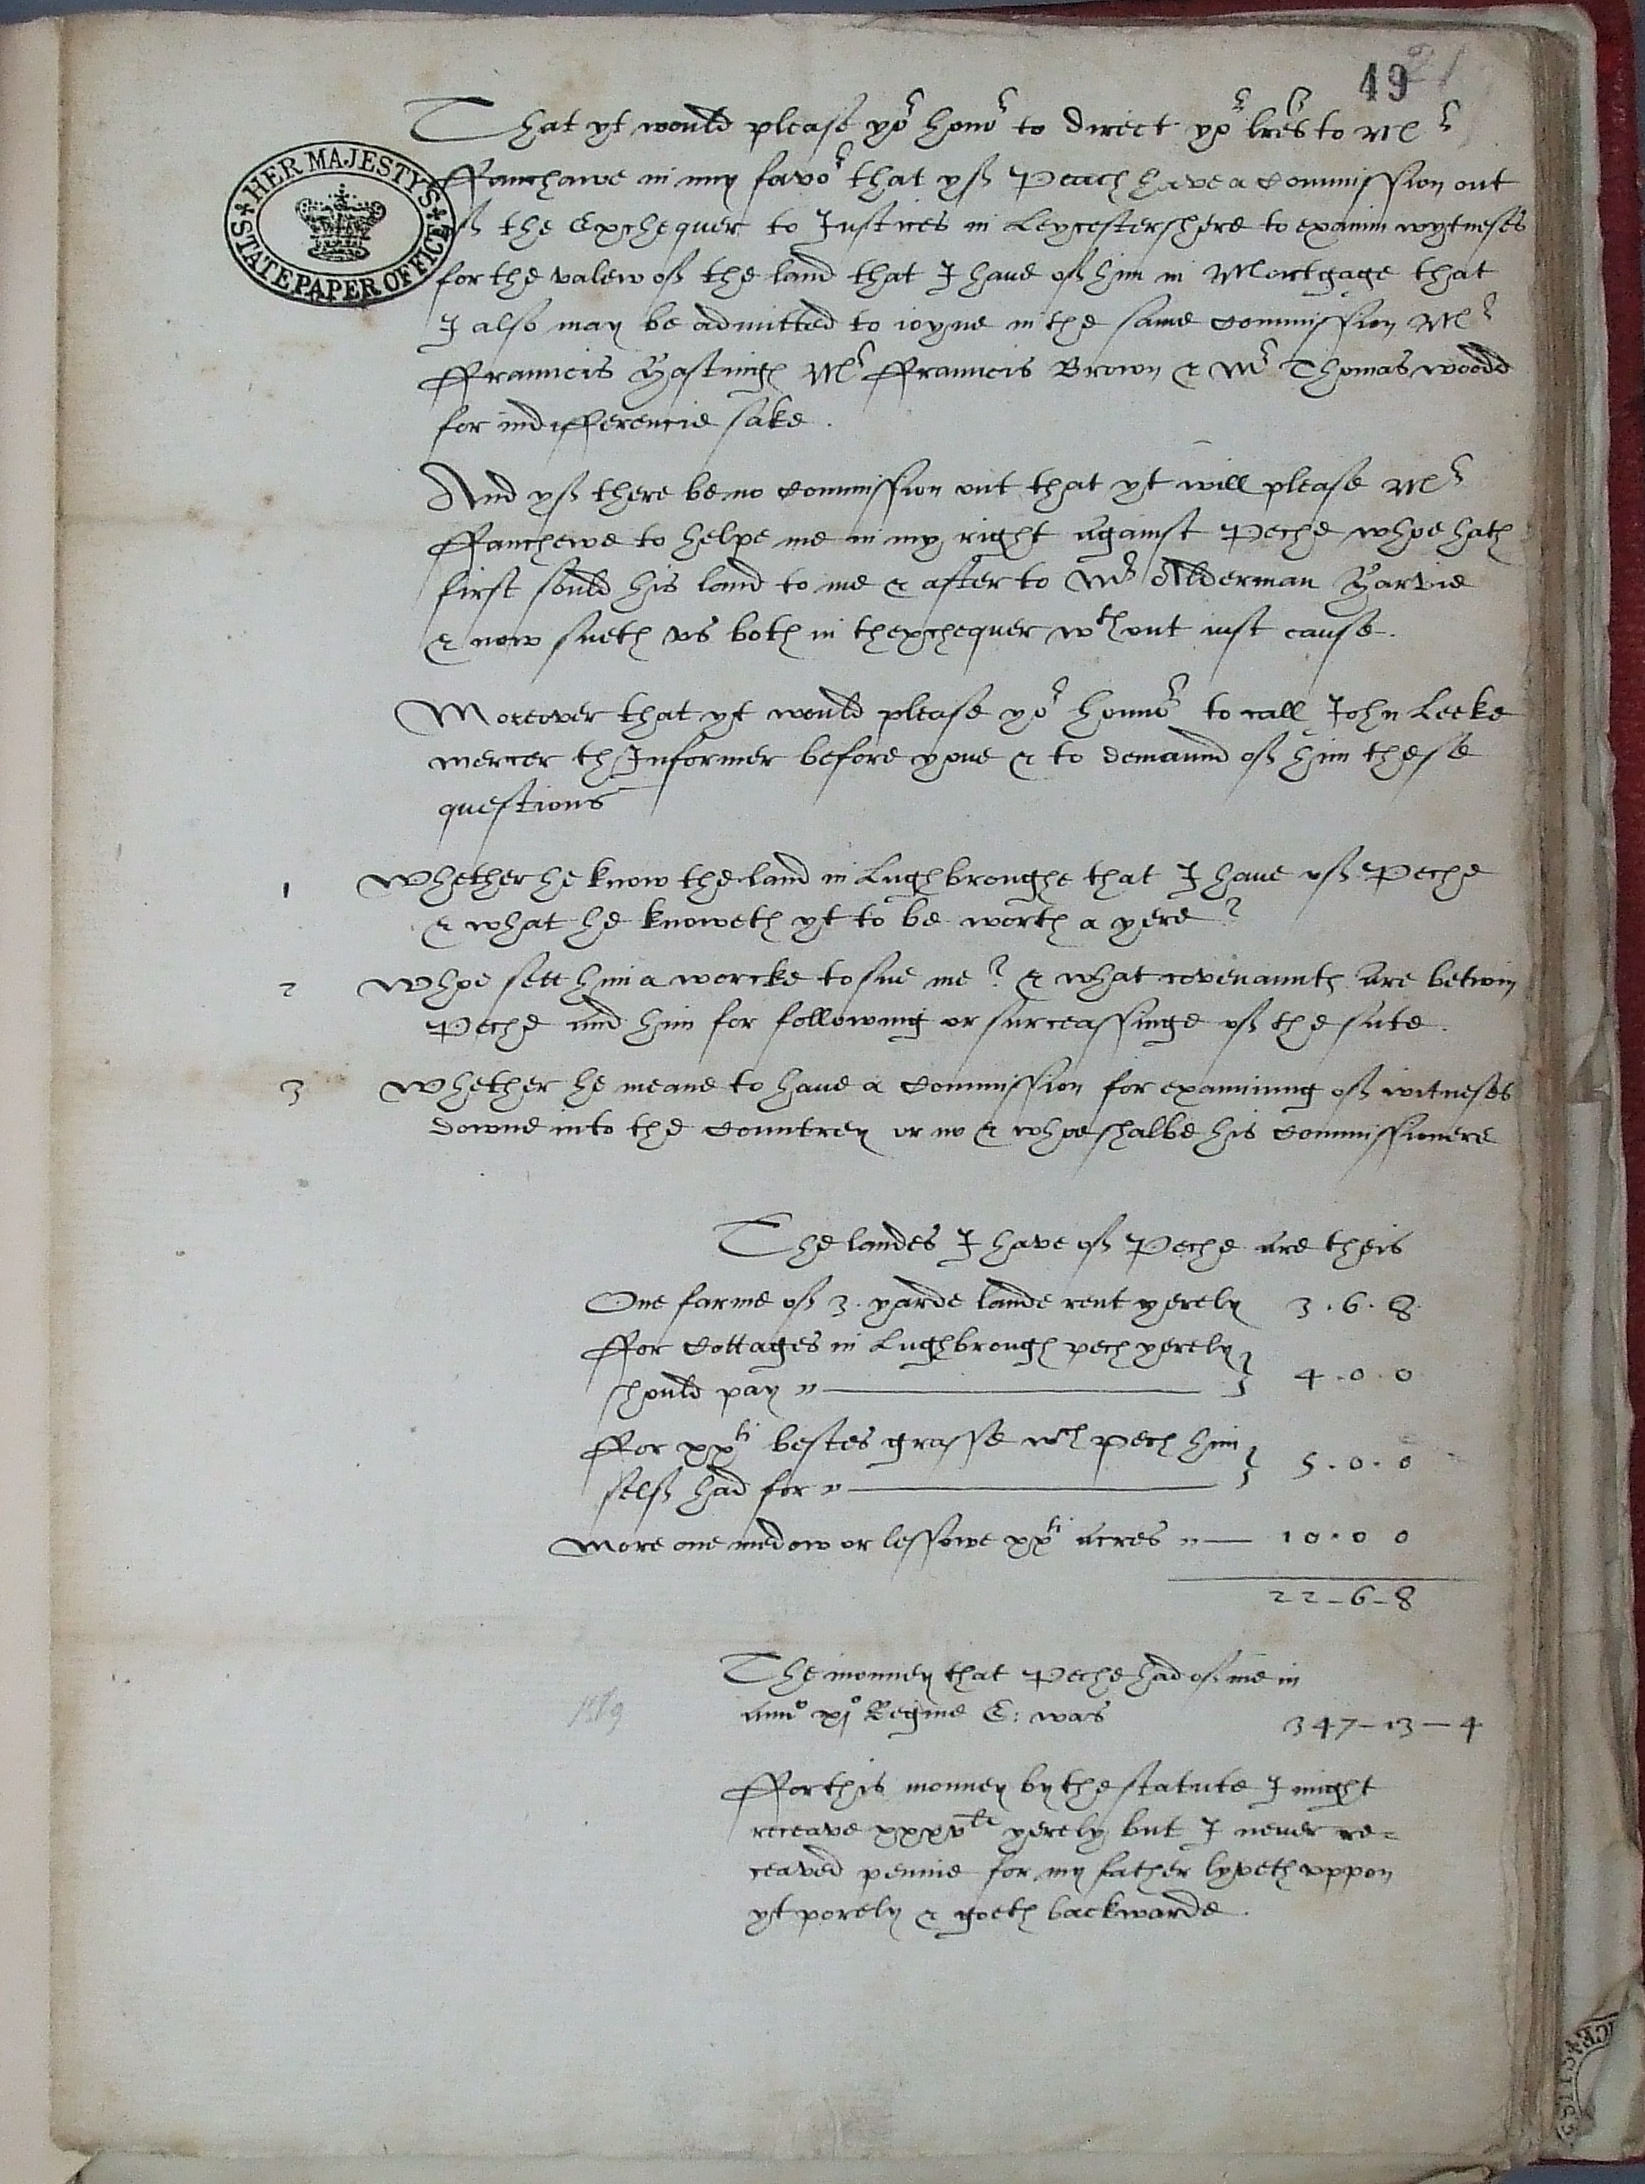 49
21
HER MAJESTY'S
STATE PAPER OFFICE
That yt would please yor honor to direct yor lres to Mr
Ffanchawe in my favor that yff Peach have a Commission out
off the Exchequer to Justices in Leycestershere to examin wytneses
for the valew off the land that I haue off him in Mortgage that
I also may be admitted to ioyne in the same Commission Mr
Ffrauncis Hastings Mr Ffrauncis Brown & Mr Thomas woodd
for indifferencie sake.
And yff there be no Commission out that yt will please Mr
Ffanchewe to helpe me in my right against Peche whoe hath
first sould his land to me & after to Mr Alderman Harvie
& now sueth vs both in thexchequer wthout iust cause.
Moreover that yt would please yor honnor to call John Leeke
mercer th Informer before youe & to demaund off him these
questions
1 Whether he know the land in Lughbroughe that I haue off Peche
& what he knoweth yt to be worth a yere?
2 Whoe sett him a worcke to sue me? & what covenaunts are betwin
Peche and him for following or surceassinge off the sute.
3 Whether he meane to haue a Commission for examining off witneses
downe into the Countrey or no & whoe shalbe his Commissionere
The landes I have off Peche are theis
One farme off 3. yarde lande rent yerely 3. 6. 8.
Ffor Cottages in Lughbrough pech yerely
should pay 4. 0. 0
Ffor xxti bestes grasse wch pech him
selff had for 5. 0. 0
More one medow or lessowe xxti acres 10. 0 0
22-6-8
The monney that Peche had off me in
anno xjo Regine E: was 347-13-4
1569
Ffor this monney by the statute I might
receave xxxvli yerely but I never re=
ceaved pennie for my father lyveth vppon
yt porely & goeth backwarde.